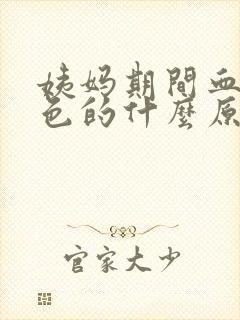 姨妈期間血
色的什麼原
官家大少